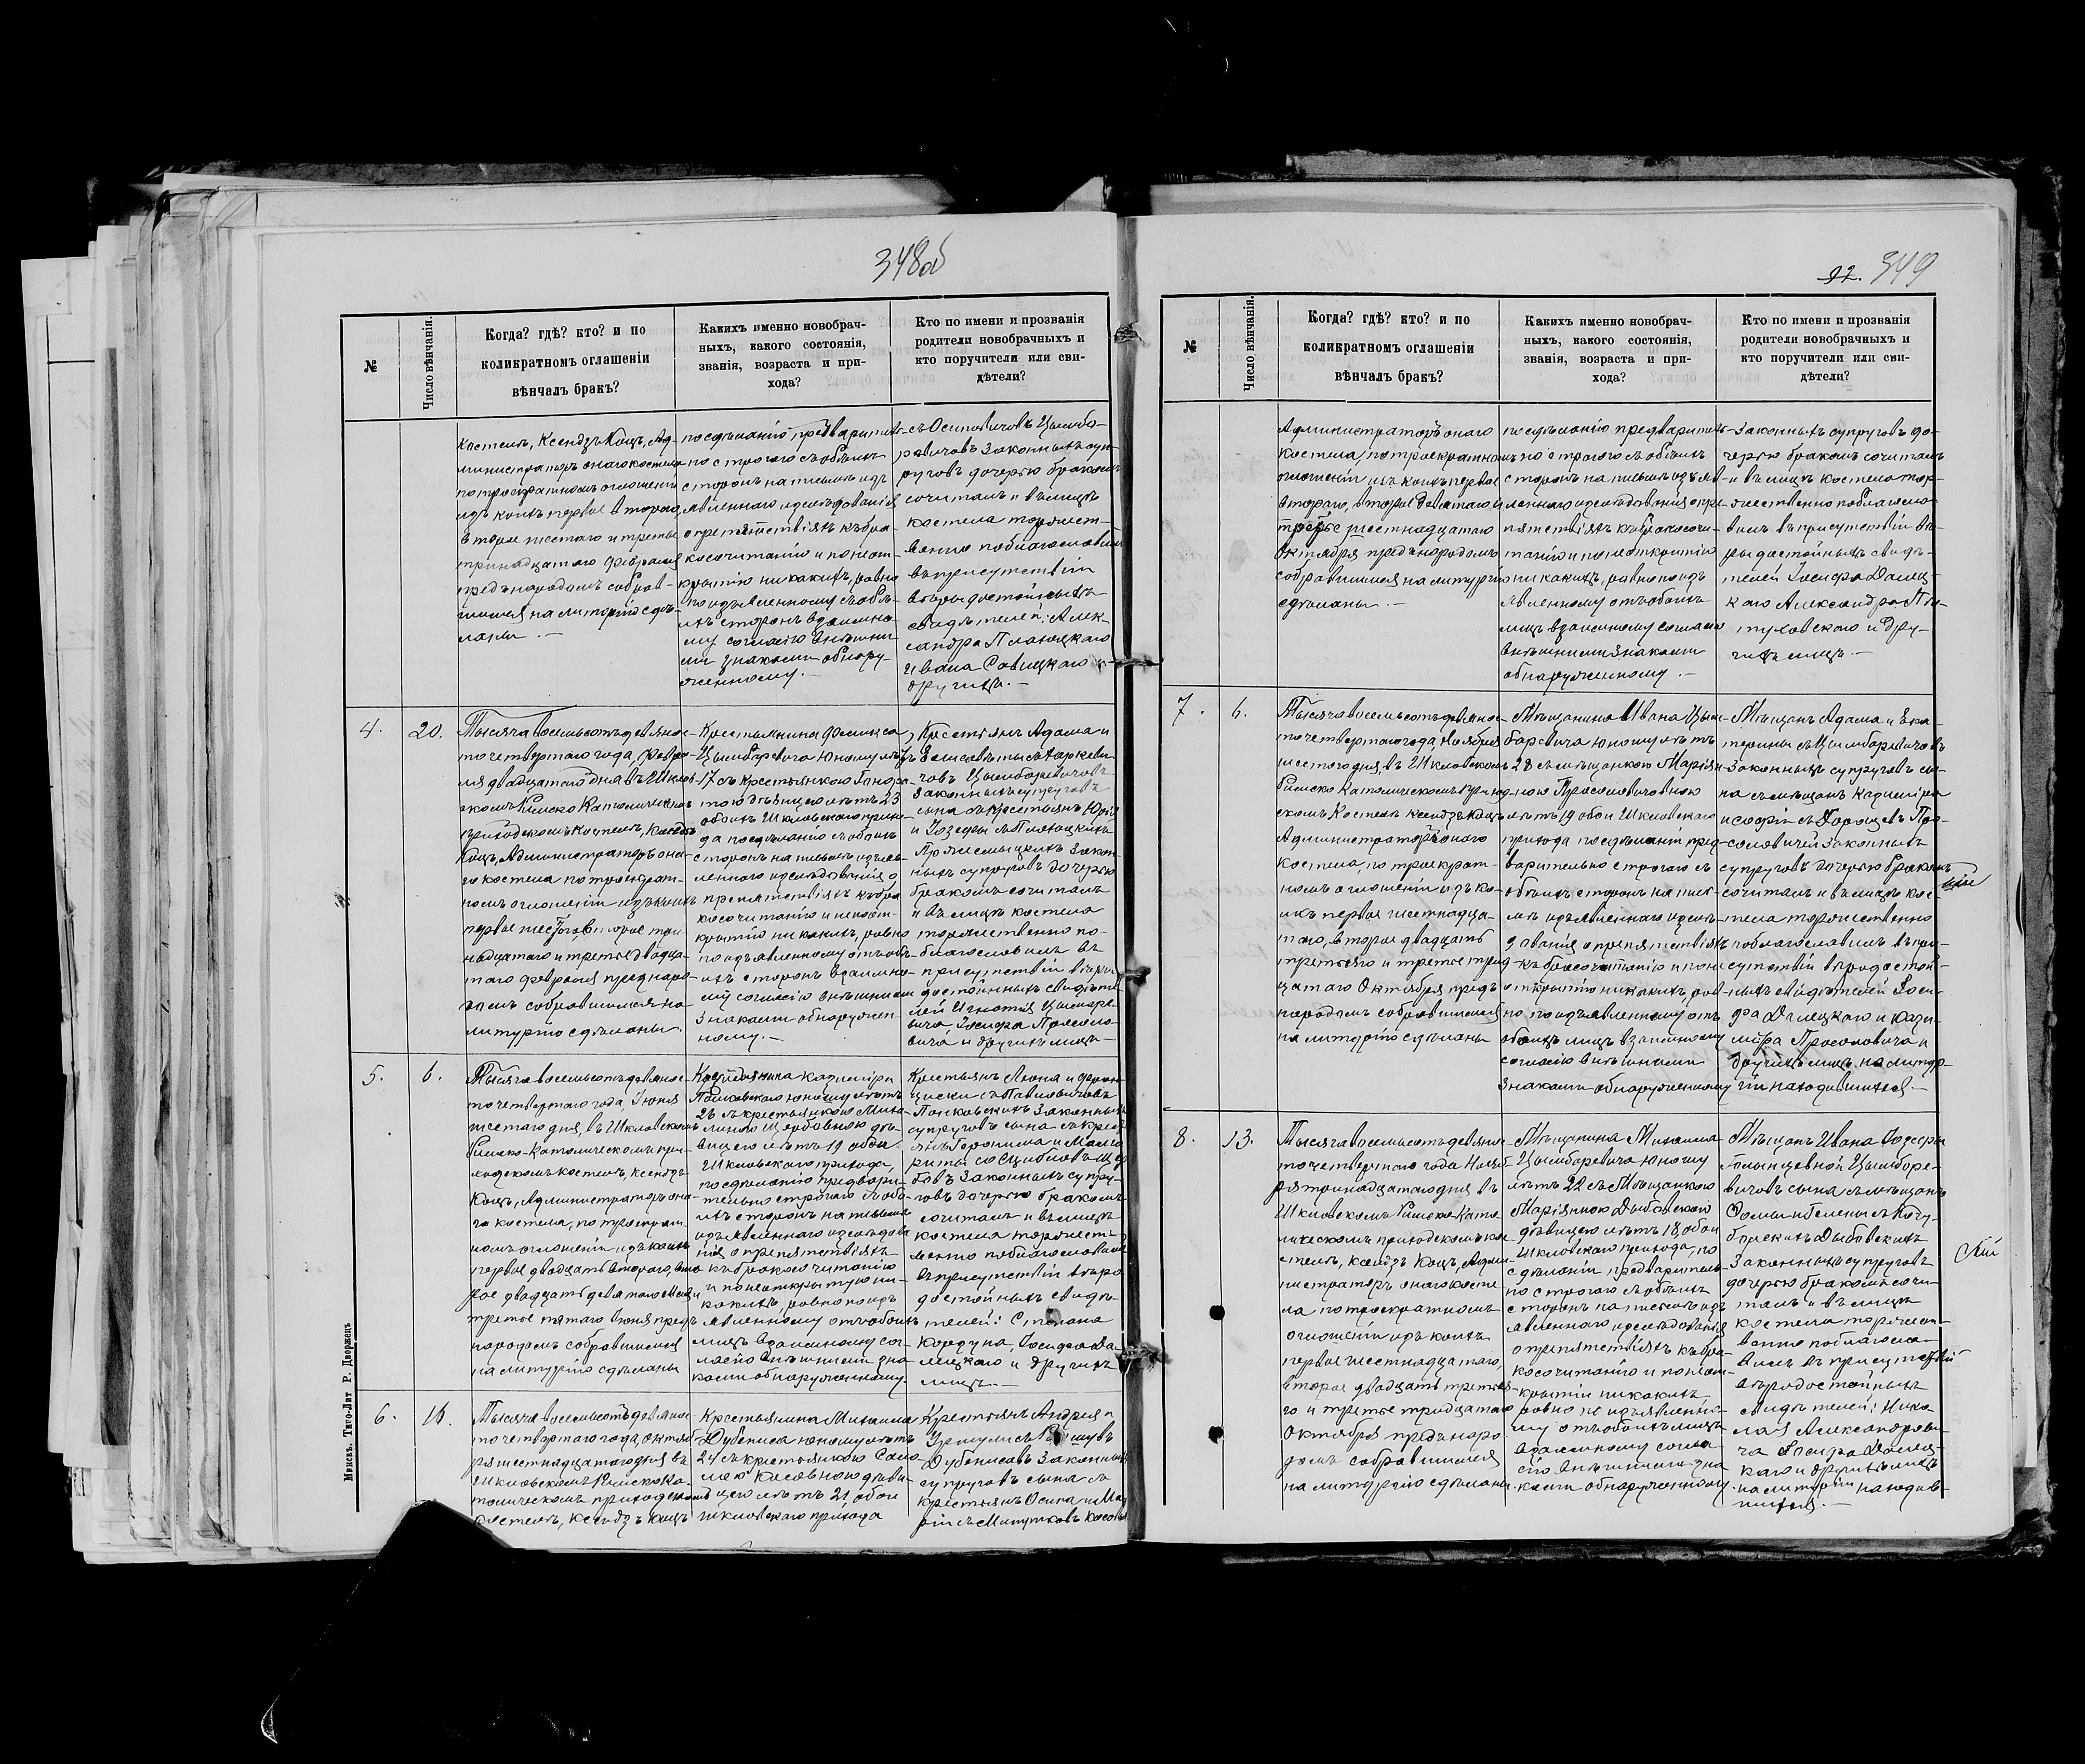 348об
№
Число вѣнчанія.
Когда? гдѣ? кто? и по
коликратномъ оглашеніи
вѣнчалъ бракъ?
Какихъ именно новобрач-
ныхъ, какого состоянія,
званія, возраста и при-
хода?
Кто по имени и прозванія
родители новобрачныхъ и
кто поручители или сви-
дѣтели?
костелѣ, Ксендзъ Коцъ, Ад-
министраторъ онаго костела
по троекратномъ оглашеніи
изъ коихъ первое втораго,
второе шестаго и третье
тринадцатаго Февраля
предъ народомъ собрав-
шимся на литургію сдѣ-
ланы.—
по сдѣланію предварител-
но строгаго съ обѣихъ
сторонъ на письмѣ изъ
явленнаго изслѣдованія
о препятствіяхъ къ бра
косочитанію и по неот-
крытію никакихъ, равно
по изъявленному съ обѣ-
ихъ сторонъ взаимно-
му согласію внѣшни-
ми знаками обнару-
женному.—
съ Осиповичовъ Цымба-
ревичовъ законныхъ суп
руговъ дочерью бракомъ
сочиталъ и въ лицѣ
костела торжест-
венно поблагословилъ
въ присутствіи
вѣры достойныхъ
свидѣтелей: Алек-
сандра Плавоцкаго
Ивана Савицкаго и
другихъ.—
4.
20.
Тысяча восемьсотъ девянос-
то четвертаго года, Февра-
ля двадцатаго дня въ Шклов-
скомъ Римско Католическомъ
приходскомъ Костелѣ, Ксендзъ
Коцъ, Администраторъ она-
го костела по троекрат-
номъ оглашеніи изъ коихъ
первое шестого, второе три
надцатаго и третье двадца-
таго Февраля пред наро-
домъ собравшимся на
литургію сдѣланы.
Крестьянина Феликса
Цымбаревича юношу лѣтъ
17 съ крестьянкою
дѣвицею лѣтъ 23
обоихъ Шкловскаго прихо-
да по сдѣланію съ обоихъ
сторонъ на письмѣ изъяв-
леннаго изслѣдованія о
препятствіяхъ къ бра
косочитанію и неот-
крытію никакихъ, равно
по изъявленному отъ обѣ-
ихъ сторонъ взаимно-
му согласію внѣшними
знаками обнаружен-
ному.—
Крестьянъ Адама и
Елисаветы съ Маркеви-
човъ Цымбаревичовъ
законныхъ супруговъ
сына съ крестьянъ Юрія
и Іозефы съ Плавоцкихъ
закон-
ныхъ супруговъ дочерью
бракомъ сочиталъ
и въ лицѣ костела
торжественно по-
благословилъ въ
присутствіи вѣры
достойныхъ свидѣте-
лей Игнатія Цымбаре-
вича, Іосифа Прасоло-
вича и другихъ лицъ—
5.
6.
Тысяча восемьсотъ девянос-
то четвертаго года, Іюня
шестаго дня, въ Шкловскомъ
Римско-Католическомъ при-
ходскомъ костелѣ, ксендзъ
Коцъ, Администраторъ она-
го костела, по троекрат-
номъ оглашеніи изъ коихъ
первое двадцать втораго, вто
рое двадцать девятаго Мая и
третье пятаго Іюня предъ
народомъ собравшимся
на литургію сдѣланы
Крестьянина Казиміра
Панковскаго юношу лѣтъ
26 съ крестьянкою
Щербовною дѣ-
вицею лѣтъ 19 обои
Шкловскаго прихода,
по сдѣланію предвари-
тельно строгаго съ обо-
ихъ сторонъ на письмѣ
изъявленнаго изслѣдова
нія о препятствіяхъ
къ бракосочитанію
и по неоткрытію ни-
какихъ, равно по изъ
явленному отъ обоихъ
лицъ взаимному сог-
ласію внѣшними зна
ками обнаруженному.
Крестьянъ Леона и Фран-
циски съ Павловичовъ
Панковскихъ законныхъ
супруговъ сына съ крест
янъ Іеронима и Марга
риты со Сцибловъ Щер
бовъ законныхъ супру-
говъ дочерью бракомъ
сочиталъ и въ лицѣ
костела торжест-
венно поблагословилъ
въ присутствіи вѣро
достойныхъ свидѣ-
телей: Степана
Кордуна, Іосифа Да
лецкаго и другихъ
лицъ.—
6.
16.
Тысяча восемьсотъ девянос-
то четвертаго года, октяб
ря шестнадцатаго дня въ
Шкловскомъ Римско Ка-
толическомъ приходскомъ
костелѣ, ксендзъ Коцъ
Крестьянина Михаила
Дубениса юношу лѣтъ
24 съ крестьянкою Сало
меею Косовною дѣви-
цею лѣтъ 21, обои
Шкловскаго прихода
Крестьянъ Андрея и
Уршули съ
Дубенисовъ законныхъ
супруговъ сына съ
крестьянъ Осипа и Ма
ріи съ Митутковъ Косовыхъ
Минскъ. Типо-Лит Р. Дворжецъ
92. 349
№
Число вѣнчанія.
Когда? гдѣ? кто? и по
коликратномъ оглашеніи
вѣнчалъ бракъ?
Какихъ именно новобрач-
ныхъ, какого состоянія,
званія, возраста и при-
хода?
Кто по имени и прозванія
родители новобрачныхъ и
кто поручители или сви-
дѣтели?
Администраторъ онаго
костела, по троекратномъ
оглашеніи изъ коихъ первое
втораго, второе девятаго и
третье шестнадцатаго
Октября предъ народомъ
собравшимся на литургію
сдѣланы.—
по сдѣланію предваритель-
но строгаго съ обѣихъ
сторонъ на письмѣ изъяв-
леннаго изслѣдованія о пре
пятствіяхъ къ бракосочи-
танію и по неоткрытію
никакихъ, равно по изъ
явленному отъ обоихъ
лицъ взаимному согласію
внѣшними знаками
обнаруженному.—
законныхъ супруговъ до-
черью бракомъ сочиталъ
и въ лицѣ костела тор-
жественно поблагосло-
вилъ въ присутствіи вѣ-
ры достойныхъ свидѣ-
телей Іосифа Далец-
каго Александра Пѣ-
туховскаго и дру-
гихъ лицъ.—
7.
6.
Тысяча восемьсотъ девянос-
то четвертаго года, Ноября
шестого дня, въ Шкловскомъ
Римско Католическомъ приход
скомъ Костелѣ ксендзъ Коцъ
Администраторъ онаго
костела, по троекрат-
номъ оглашеніи изъ ко-
ихъ первое шестнадца-
таго, второе двадцать
третьяго и третье трид-
цатаго Октября предъ
народомъ собравшимся
на литургію сдѣланы
Мѣщанина Ивана Цым-
баревича юношу лѣтъ
28 съ мѣщанкою Маріян-
ною Прасоловичовною
лѣтъ 19 обои Шкловскаго
прихода по сдѣланіи пред
варительно строгаго съ
обѣихъ сторонъ на пись-
мѣ изъявленнаго изслѣ-
дованія о препятствіяхъ
къ бракосочитанію и по не
открытію никакихъ, рав-
но по изъявленному отъ
обоихъ лицъ взаимному
согласію внѣшними
знаками обнаруженному
Мѣщанъ Адама и Ека-
терины съ Цымбаревичовъ
законныхъ супруговъ сы-
на съ мѣщанъ Казиміра
и Софіи съ Дорощевъ Пра-
соловичей законныхъ
супруговъ дочерью бракомъ
сочиталъ и въ лицѣ кос-
тела торжественно
поблагословилъ въ при-
сутствіи вѣродостой-
ныхъ свидѣтелей Іоси-
фа Далецкаго и Кази-
міра Прасоловича и
другихъ лицъ на литур-
гіи находившихся.—
8.
13.
Тысяча восемьсотъ девянос
то четвертаго года Нояб-
ря тринадцатаго дня въ
Шкловскомъ Римско-Като
лическомъ приходскомъ ко
стелѣ, ксендзъ Коцъ, Адми-
нистраторъ онаго косте
ла по троекратномъ
оглашеніи изъ коихъ
первое шестнадцатаго,
второе двадцать третья-
го и третье тридцатаго
Октября предъ наро-
домъ собравшимся
на литургію сдѣланы.
Мѣщанина Михаила
Цымбаревича юношу
лѣтъ 22 съ Мѣщанкою
Маріянною Дыбовской
дѣвицею лѣтъ 18, обои
Шкловскаго прихода, по
сдѣланіи предваритель-
но строгаго съ обѣихъ
сторонъ на письмѣ изъ
явленнаго изслѣдованія
о препятствіяхъ къ бра-
косочитанію и по неот-
крытіи никакихъ
равно по изъявленно-
му отъ обоихъ лицъ
взаимному согла
сію внѣшними зна
ками обнаруженному
Мѣщанъ Ивана Іозефы
Голынцевной Цымбаре-
вичовъ сына съ мѣщанъ
Ѳомы и Елены съ
Дыбовскихъ
законныхъ супруговъ
дочерью бракомъ сочи-
талъ и въ лицѣ
костела торжест-
венно поблагосло-
вилъ въ присутствіи
вѣродостойныхъ
свидѣтелей: Нико-
лая Александрови-
ча Іосифа Далец-
каго и другихъ лицъ
на литургіи находив-
шихся.—